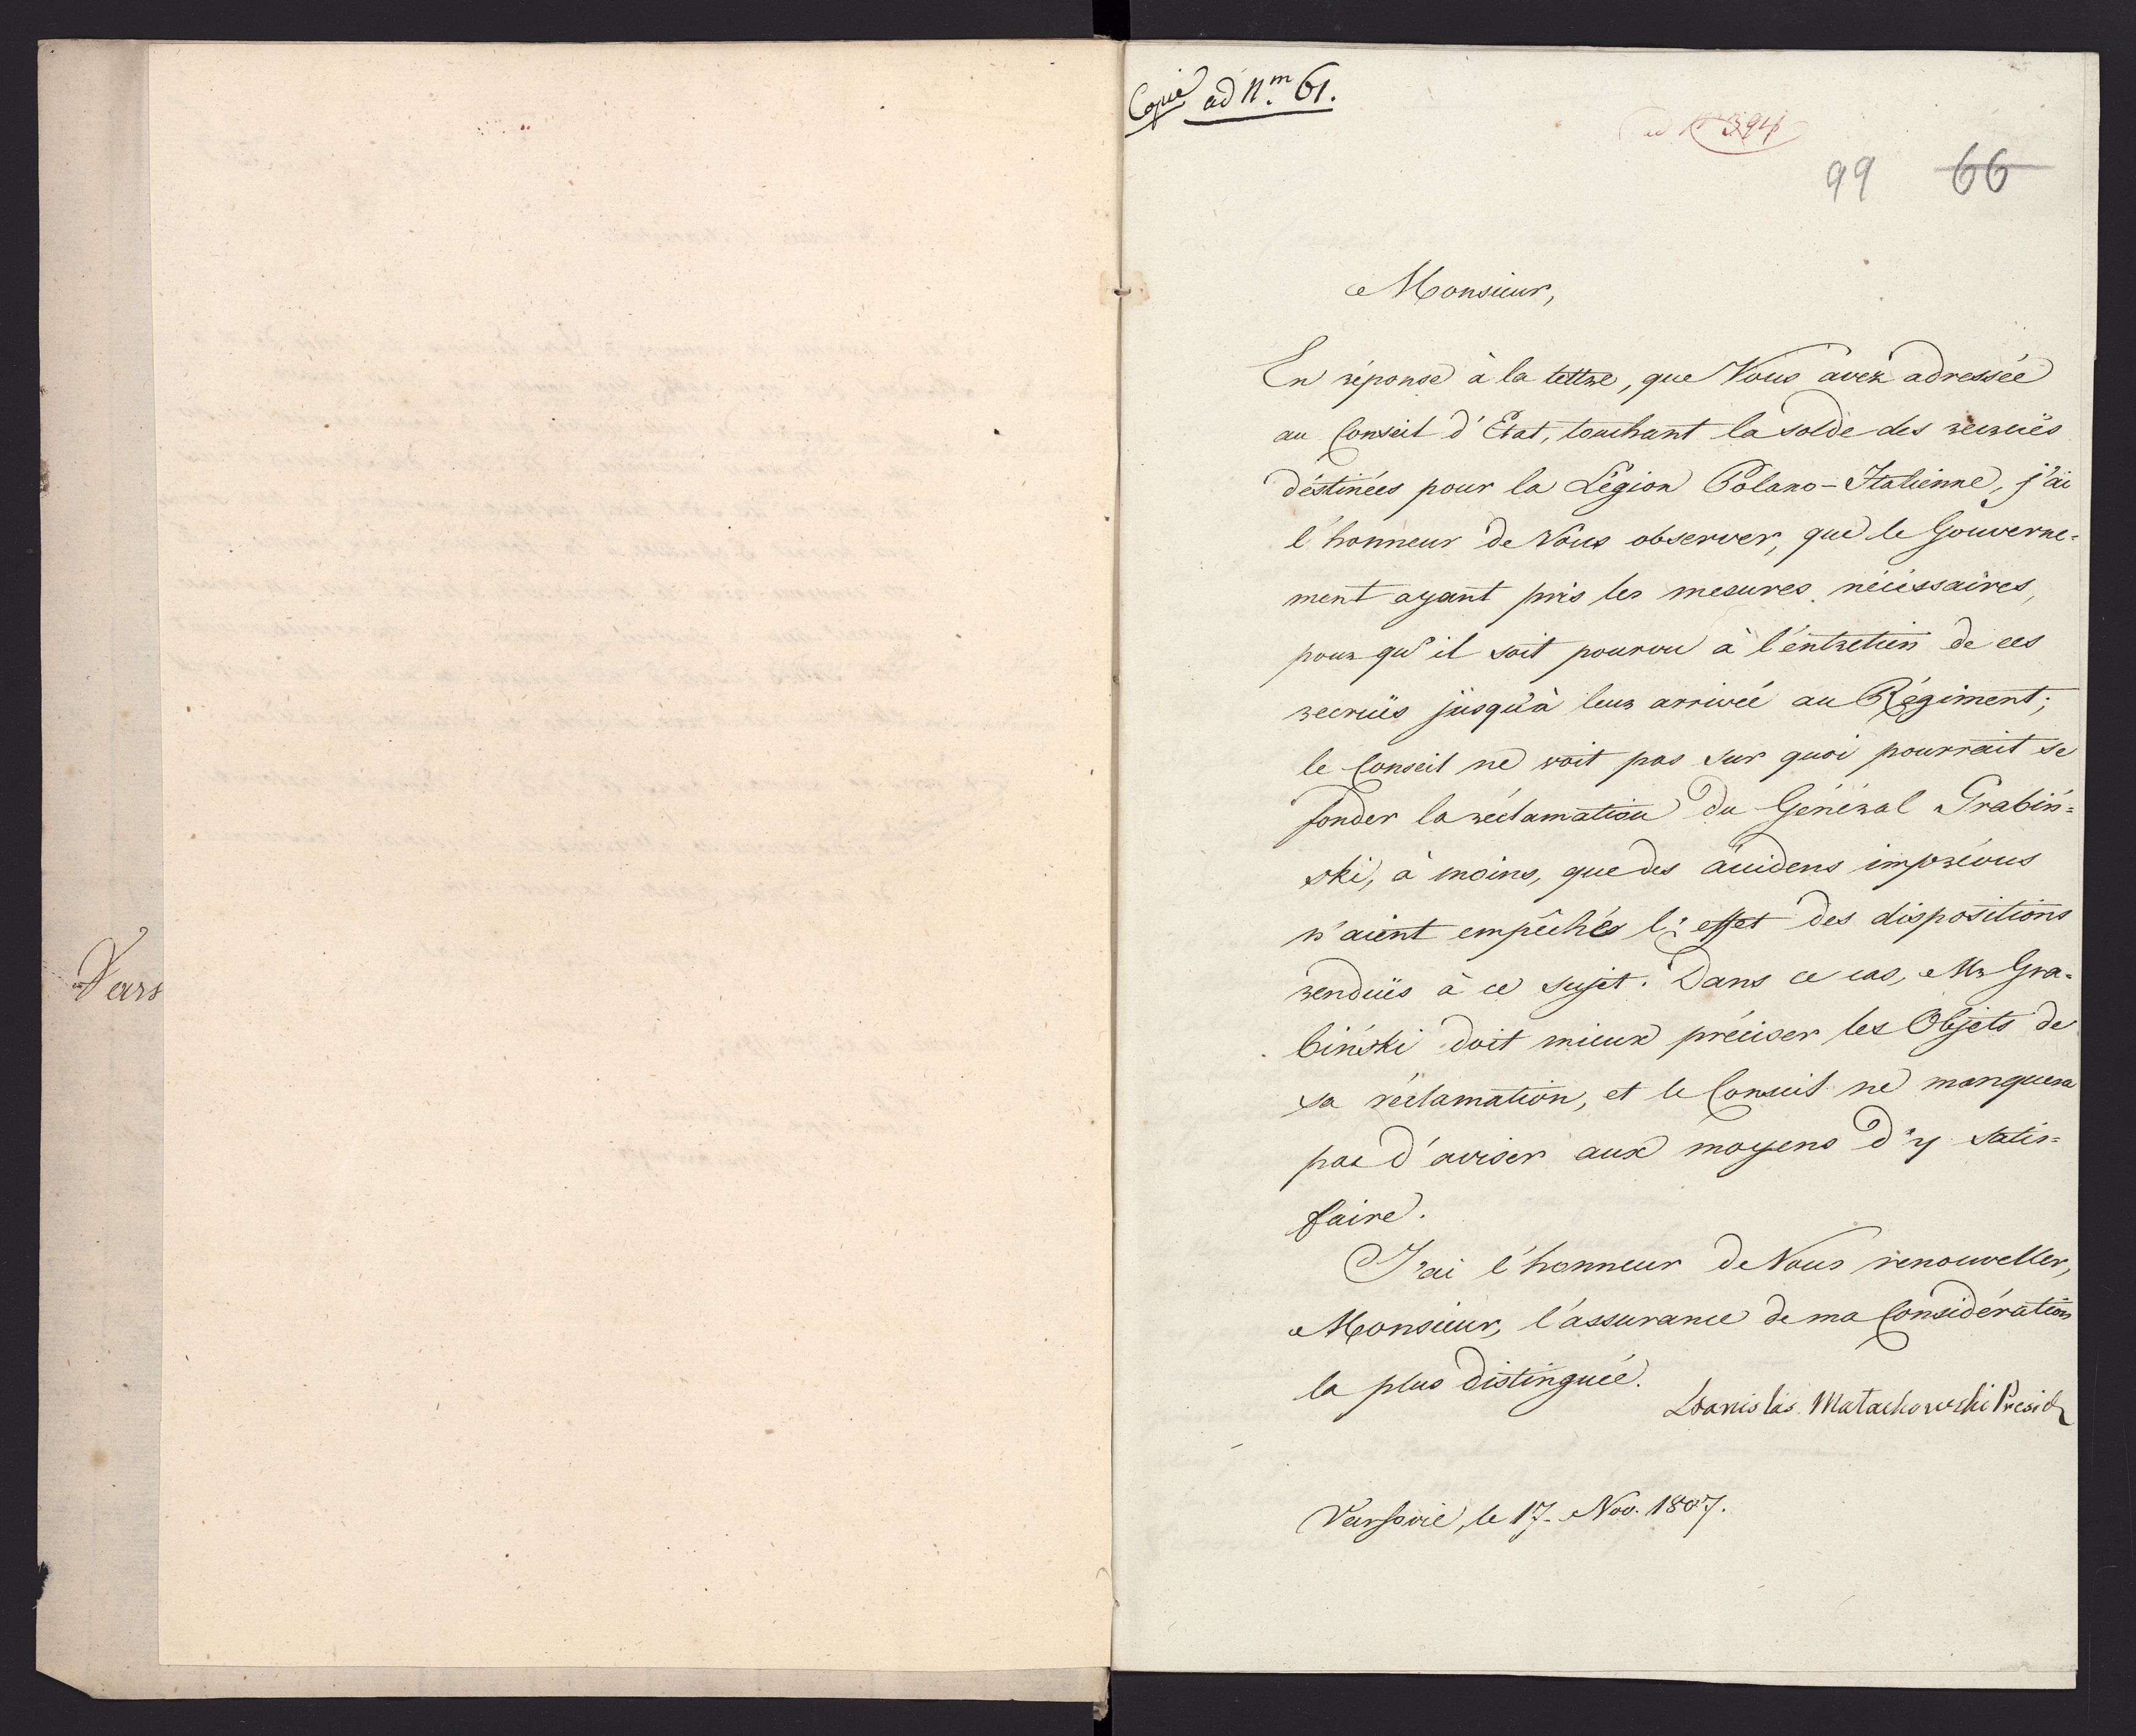 Vars
Copie ad N.m 61.
ad N 394
99 66
Monsieur,
En réponse à la lettre, que Vous avez adressée
au Conseil d'Etat, touchant la solde des recruës
déstinées pour la Légion Polano-Italienne, j'ai
l'honneur de Vous observer, que le Gouverne-
ment ayant pris les mesures nécéssaires,
pour qu'il soit pourvu à l'entretien de ces
recruës jusqu'à leur arrivée au Régiment;
le Conseil ne voit pas sur quoi pourrait se
fonder la réclamation du Général Grabiń-
ski, à moins, que des accidens imprévus
n'aient empêchés l'effet des dispositions
renduës à ce sujet. Dans ce cas, Mr Gra-
biński doit mieux préciser les Objets de
sa réclamation, et le Conseil ne manquera
pas d'aviser aux moyens d'y satis-
faire.
J'ai l'honneur de Vous renouveller,
Monsieur, l'assurance de ma Considération
la plus distinguée.
Stanislas Małachowski Presid
Varsovie, le 17. Nov. 1807.